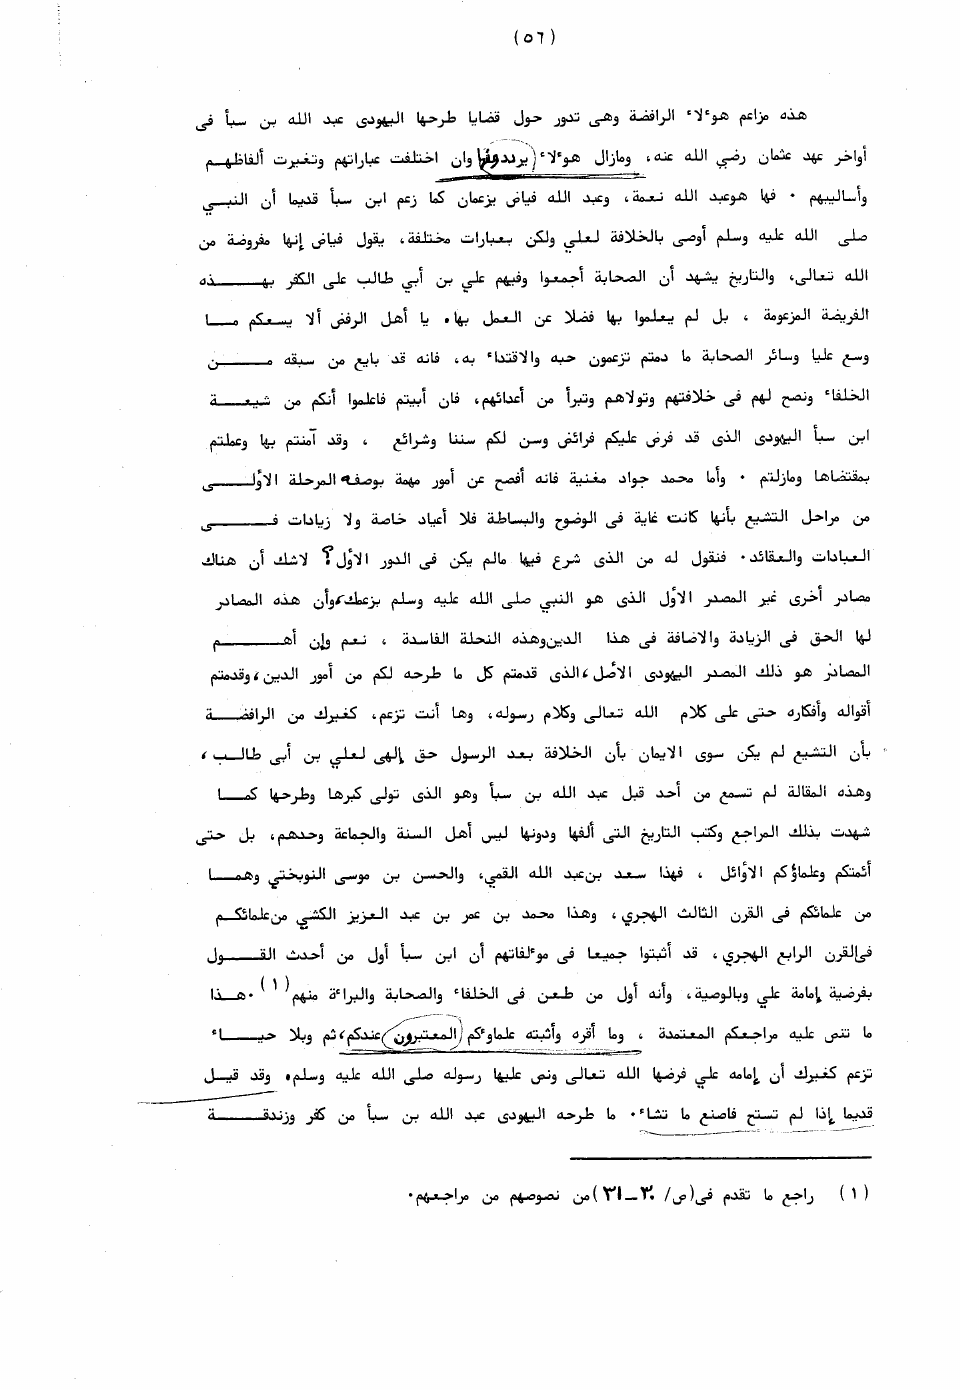 (٥٦)
هذه مزاعم هوٴلاٴ الرافضة وهى تدور حول قضايا طرحها اليهودى عبد الله بن سبأ فى
أواخر عهد عثمان رضي الله عنه، ومازال هوٴلاٴ (يرددونها) وان اختلفت عباراتهم وتغيرت ألفاظهم
وأساليبهم ٠ فها هوعبد الله نعمة، وعبد الله فياض يزعمان كما زعم ابن سبأ قديما أن النبي
صلى الله عليه وسلم أوصى بالخلافة لعلي ولكن بعبارات مختلفة، يقول فياض إنها مفروضة من
الله تعالى، والتاريخ يشهد أن الصحابة أجمعوا وفيهم علي بن أبي طالب على الكفر بهذه
الفريضة المزعومة ، بل لم يعلموا بها فضلا عن العمل بها٠ يا أهل الرفض ألا يسعكم ما
وسع عليا وسائر الصحابة ما دمتم تزعمون حبه والاقتداٴ به، فانه قد بايع من سبقه من
الخلفاٴ ونصح لهم فى خلافتهم وتولاهم وتبرأ من أعدائهم، فان أبيتم فاعلموا أنكم من شيعة
ابن سبأ اليهودى الذى قد فرض عليكم فرائض وسن لكم سننا وشرائع ، وقد آمنتم بها وعملتم
بمقتضاها ومازلتم ٠ وأما محمد جواد مغنية فانه أفصح عن أمور مهمة بوصفه المرحلة الأولى
من مراحل التشيع بأنها كانت غاية فى الوضوح والبساطة فلا أعياد خاصة ولا زيادات فى
العبادات والعقائد٠ فنقول له من الذى شرع فيها مالم يكن فى الدور الأول؟ لاشك أن هناك
مصادر أخرى غير المصدر الأول الذى هو النبي صلى الله عليه وسلم بزعمك، وأن هذه المصادر
لها الحق فى الزيادة والاضافة فى هذا الدين وهذه النحلة الفاسدة ، نعم وإن أهم
المصادر هو ذلك المصدر اليهودى الأصل، الذى قدمتم كل ما طرحه لكم من أمور الدين، وقدمتم
أقواله وأفكاره حتى على كلام الله تعالى وكلام رسوله، وها أنت تزعم، كغيرك من الرافضة
بأن التشيع لم يكن سوى الايمان بأن الخلافة بعد الرسول حق إلهى لعلي بن أبى طالب ،
وهذه المقالة لم تسمع من أحد قبل عبد الله بن سبأ وهو الذى تولى كبرها وطرحها كما
شهدت بذلك المراجع وكتب التاريخ التى ألفها ودونها ليس أهل السنة والجماعة وحدهم، بل حتى
أئمتكم وعلماؤكم الأوائل ، فهذا سعد بن عبد الله القمي، والحسن بن موسى النوبختي وهما
من علمائكم فى القرن الثالث الهجري، وهذا محمد بن عمر بن عبد العزيز الكشي من علمائكم
فى القرن الرابع الهجري، قد أثبتوا جميعا فى موٴلفاتهم أن ابن سبأ أول من أحدث القول
بفرضية إمامة علي وبالوصية، وأنه أول من طعن فى الخلفاٴ والصحابة والبراٴة منهم(١)٠ هذا
ما تنص عليه مراجعكم المعتمدة ، وما أقره وأثبته علماوٴكم (المعتبرون) عندكم، ثم وبلا حياٴ
تزعم كغيرك أن إمامه علي فرضها الله تعالى ونص عليها رسوله صلى الله عليه وسلم٠ وقد قيل
قديما إذا لم تستح فاصنع ما تشاٴ٠ ما طرحه اليهودى عبد الله بن سبأ من كفر وزندقة
(١) راجع ما تقدم فى (ص/ ٣٠-٣١) من نصوصهم من مراجعهم٠